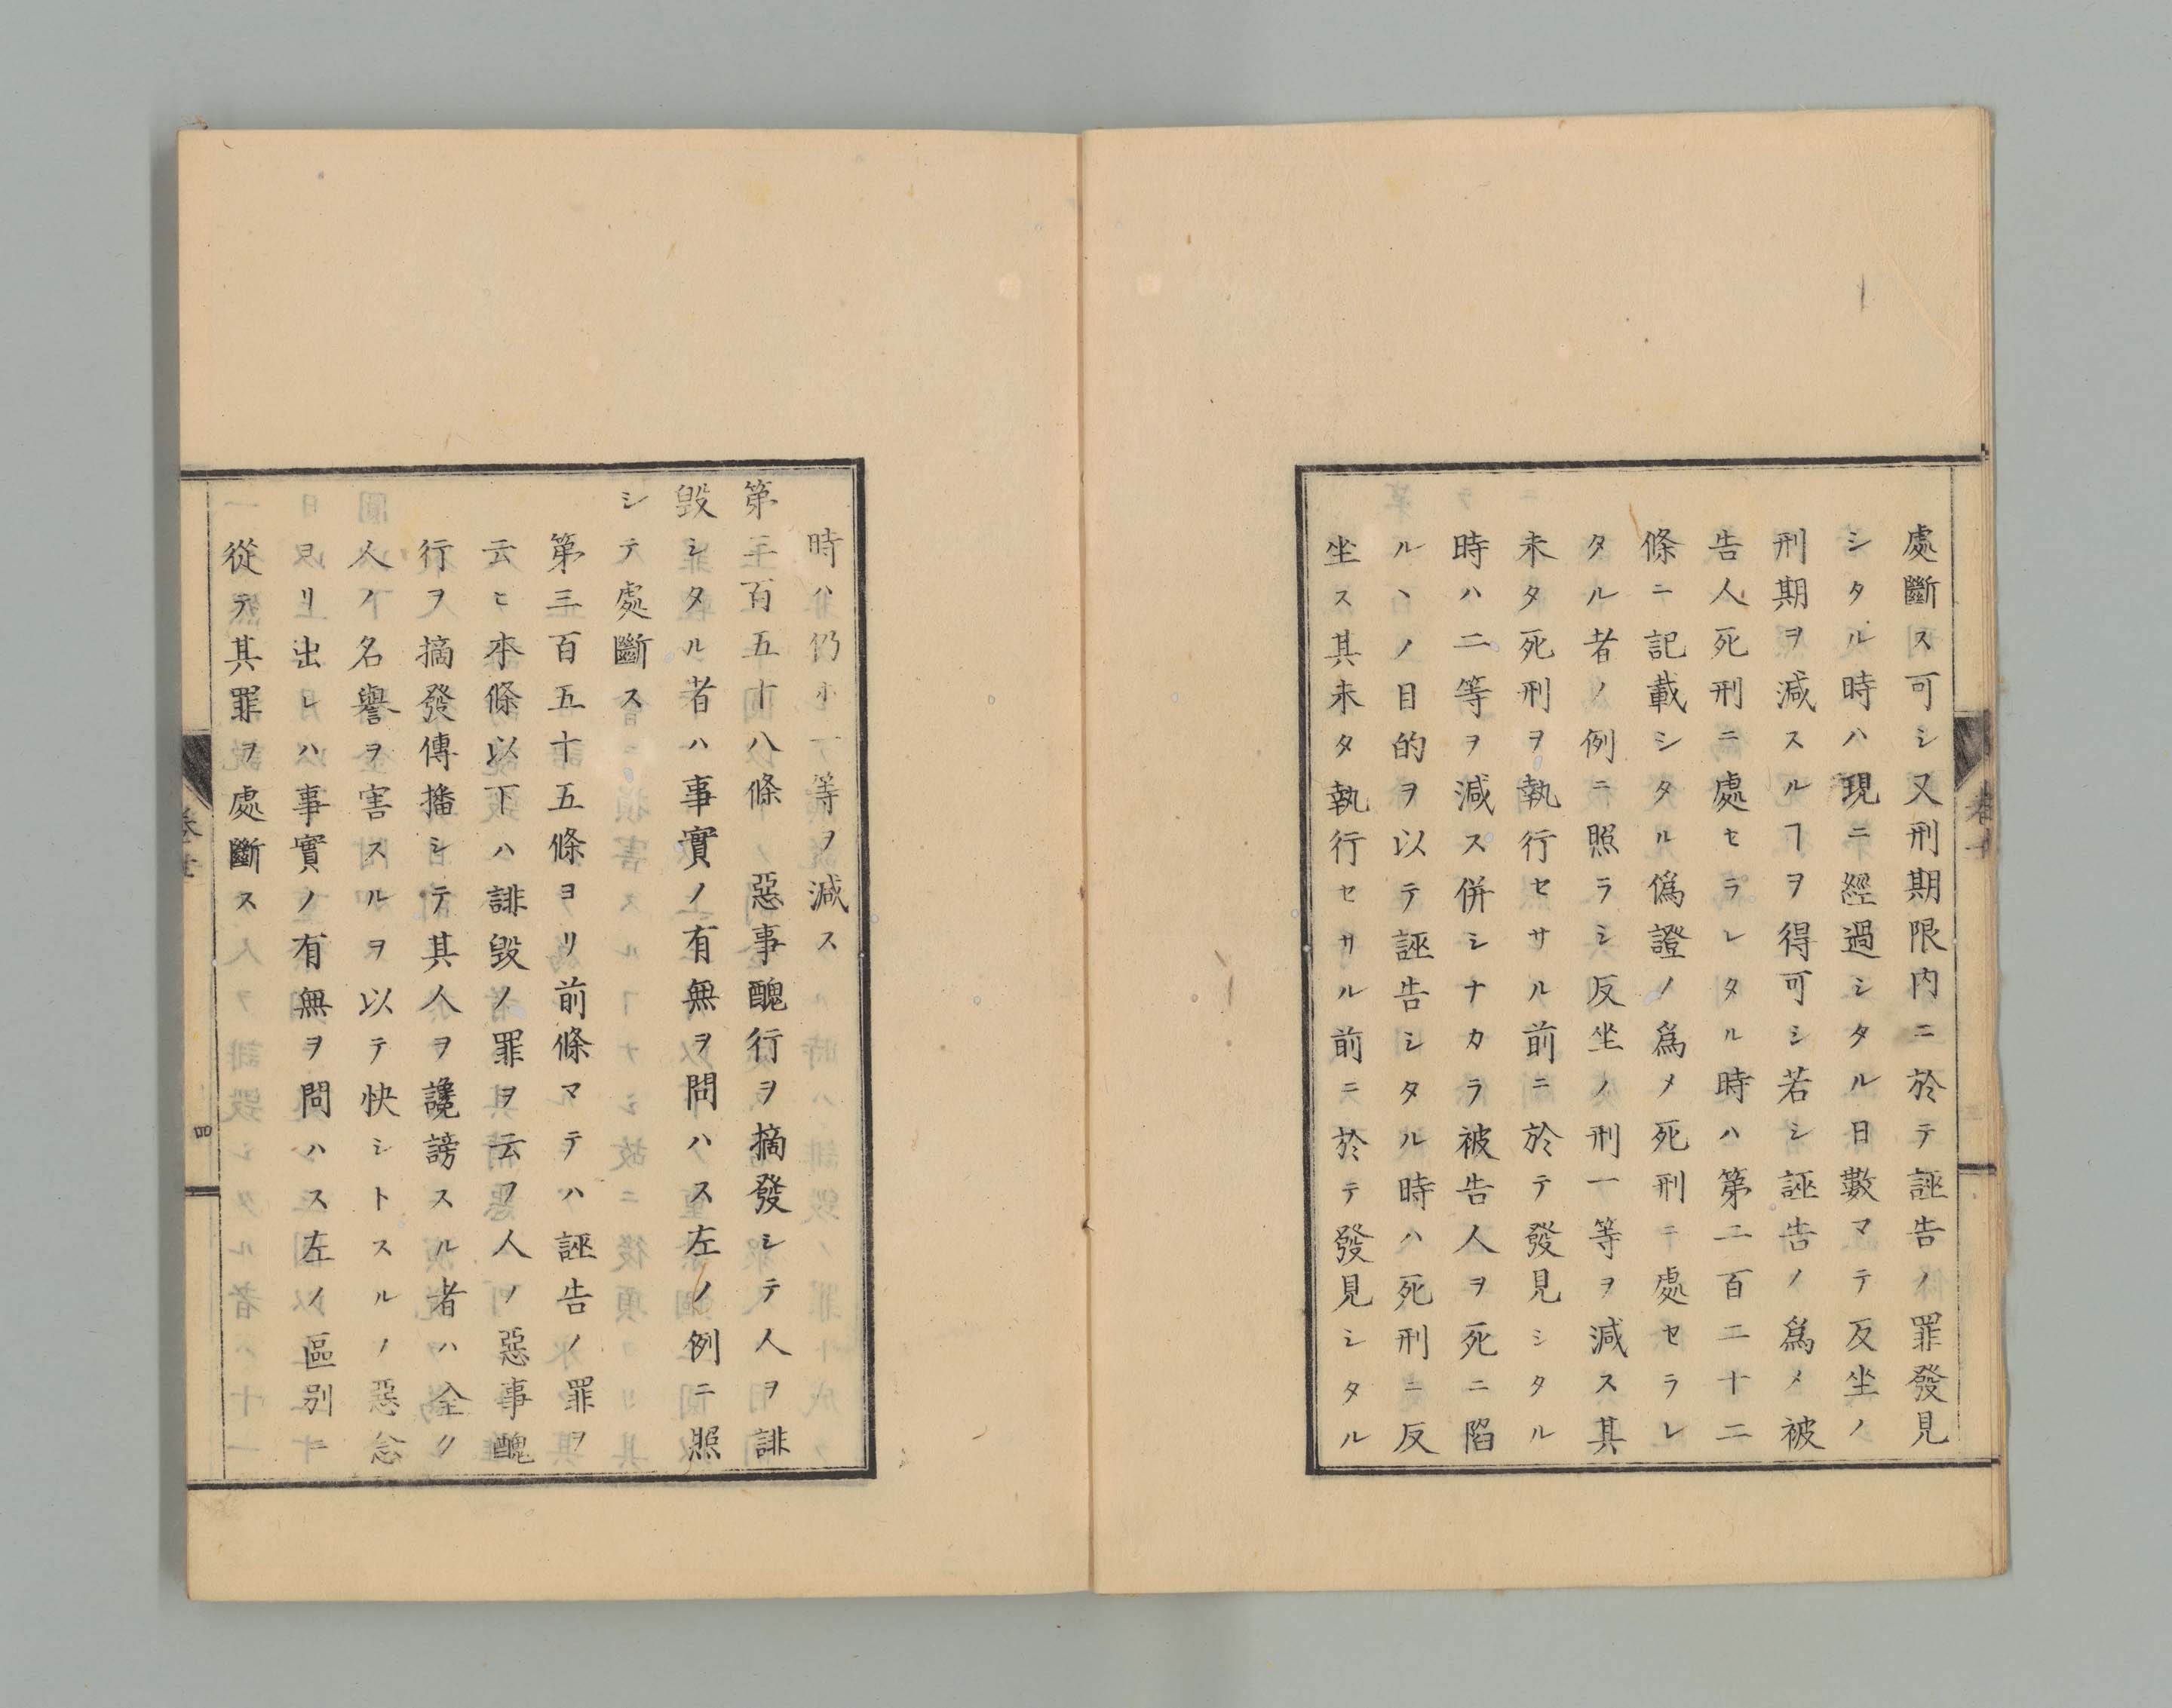 處斷ス可シ又刑期限内ニ於テ誣告ノ罪發見
シタル時ハ現ニ經過シタル日數マテ反坐ノ
刑期ヲ減スルヿヲ得可シ若シ誣告ノ爲メ被
告人死刑ニ處セラレタル時ハ第二百二十二
條ニ記載シタル僞證ノ爲メ死刑ニ處セラレ
タル者ノ例ニ照ラシ反坐ノ刑一等ヲ減ス其
未タ死刑ヲ執行セサル前ニ於テ發見シタル
時ハ二等ヲ減ス併シナカラ被告人ヲ死ニ陷
ルヽノ目的ヲ以テ誣告シタル時ハ死刑ニ反
坐ス其未タ執行セサル前ニ於テ發見シタル
時ハ仍ホ一等ヲ減ス
第三百五十八條 惡事醜行ヲ摘發シテ人ヲ誹
毀シタル者ハ事實ノ有無ヲ問ハス左ノ例ニ照
シテ處斷ス
第三百五十五條ヨリ前條マテハ誣告ノ罪ヲ
云ヒ本條以下ハ誹毀ノ罪ヲ云フ人ノ惡事醜
行ヲ摘發傳播シテ其人ヲ讒謗スル者ハ全ク
人ノ名譽ヲ害スルヲ以テ快シトスルノ惡念
ヨリ出レハ事實ノ有無ヲ問ハス左ノ區別ニ
從テ其罪ヲ處斷ス
四